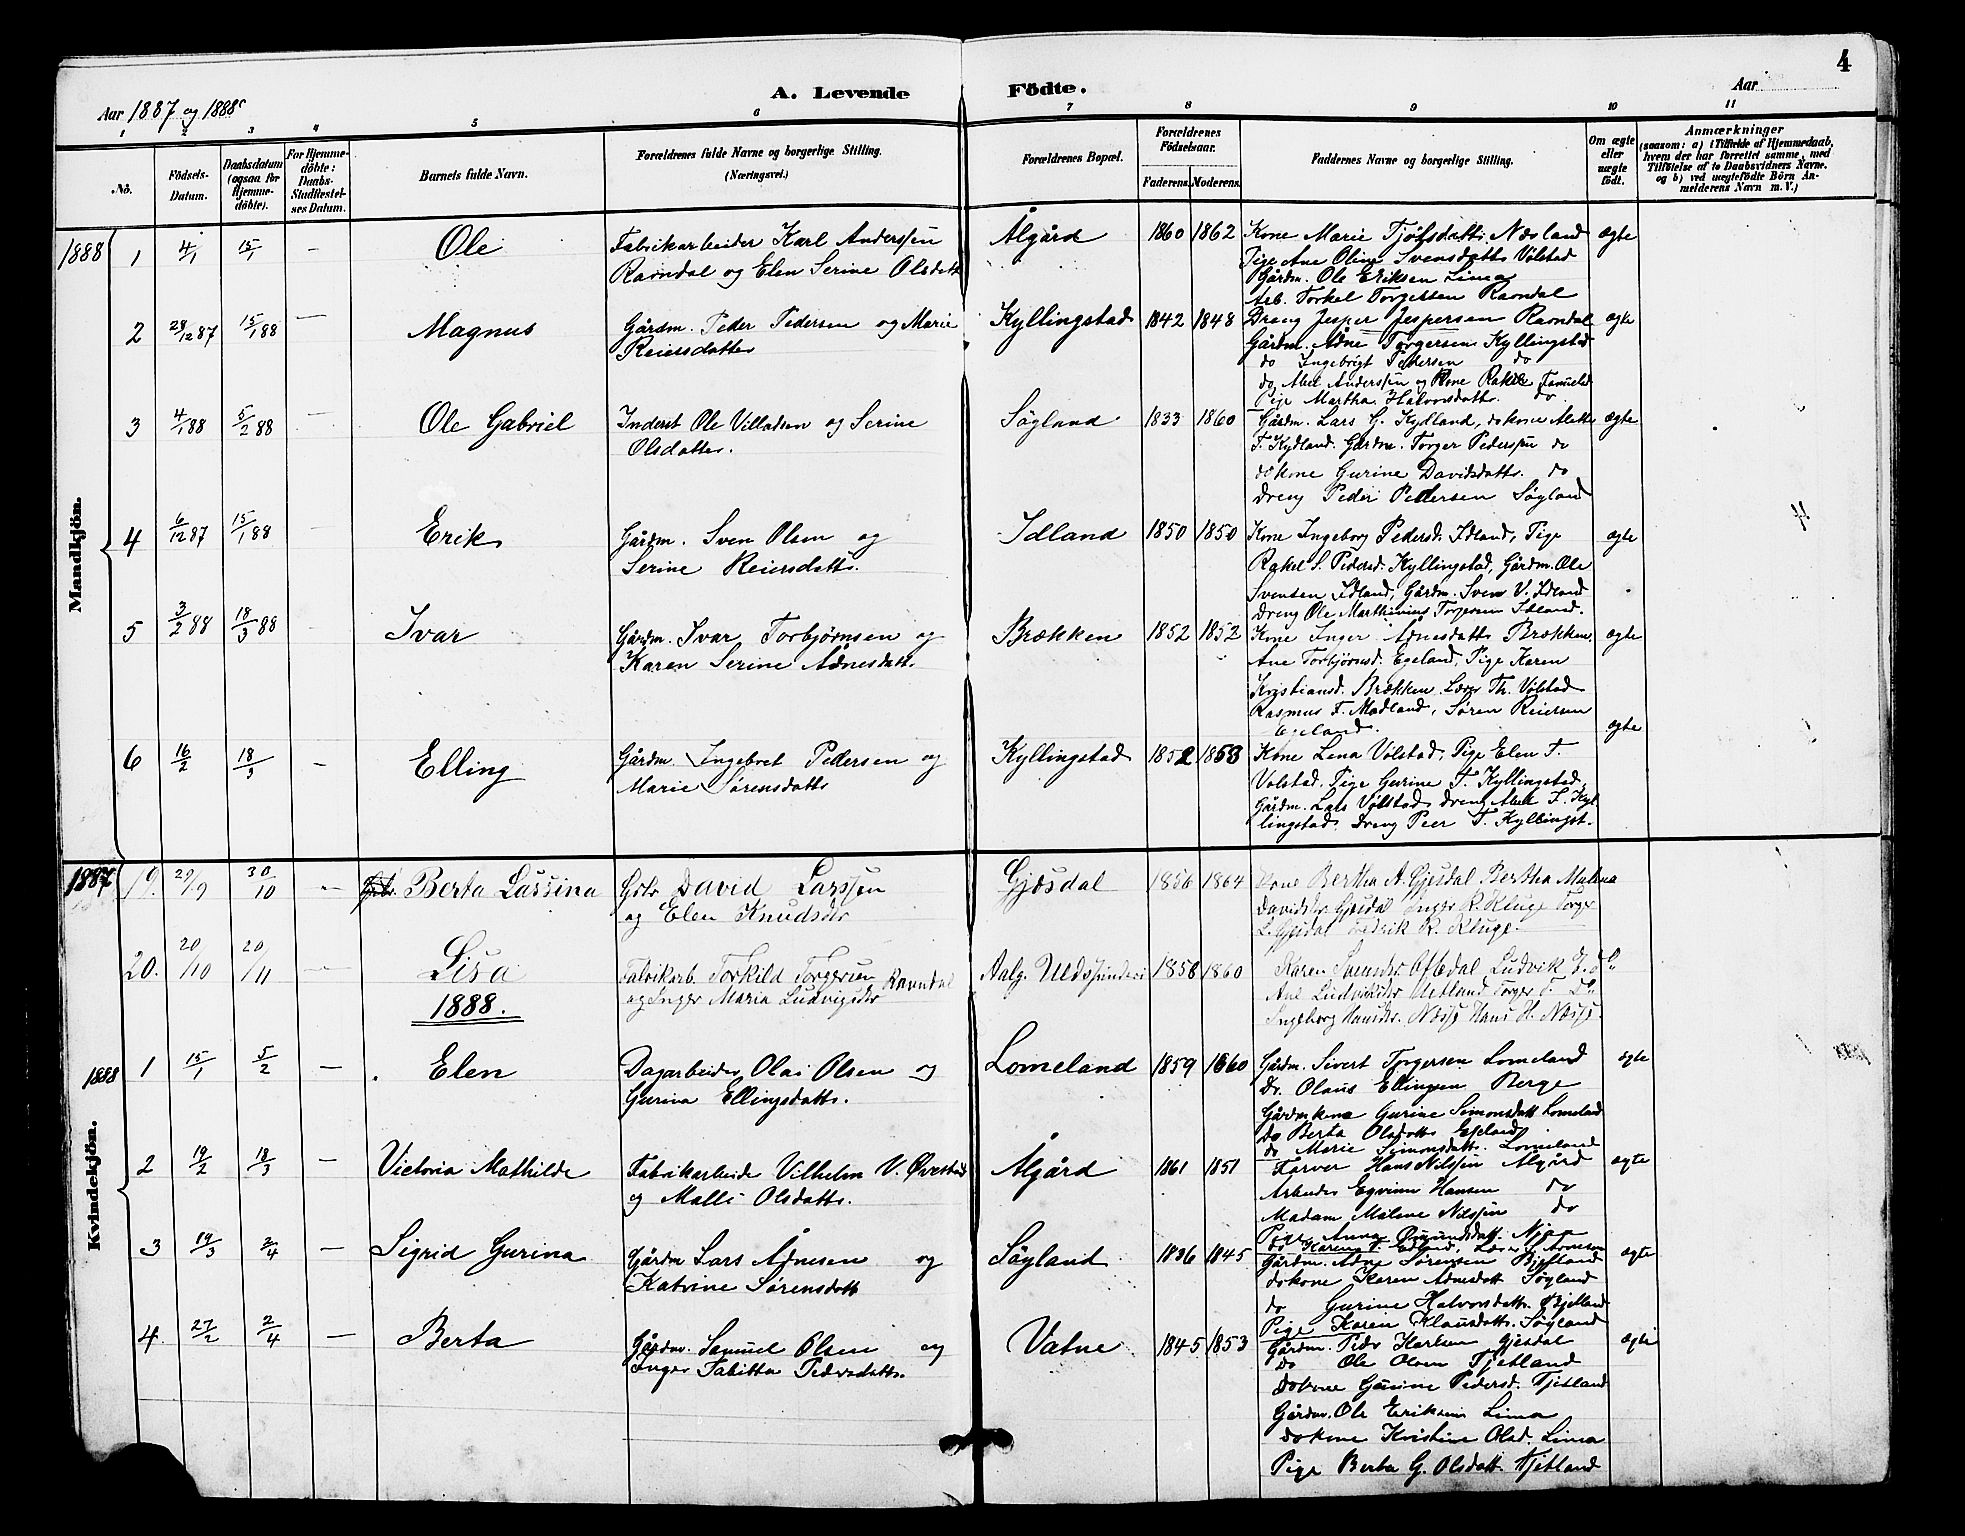 4
Aar 1887 og 1888
A. Levende Födte.
Aar
1 2 3 4 5 6 7 8 9 10 11
No.
Födsels-Datum.
Daabsdatum (ogsaa for Hjemme-döbte).
For Hjemme-döbte: Daabs-Stadfæstel-ses Datum.
Barnets fulde Navn.
Forældrenes fulde Navne og borgerlige Stilling.
(Næringsvei.)
Forældrenes Bopæl.
Forældrenes Födselsaar.
Faderens. Moderens.
Faddernes Navne og borgerlige Stilling.
Om ægte eller uægte födt.
Anmærkninger
(saasom: a) i Tilfælde af Hjemmedaab, hvem der har forrettet samme, med Tilföielse af to Daabsvidners Navne, og b) ved uægtefödte Börn An-melderens Navn m. V.)
Mandkjön.
1888 1 4/1 15/1 — Ole Fabrikarbeider Karl Anderssen Ålgård 1860 1862 Kone Marie Tjölsdatts. Næsland ægte
Ravndal og Elen Serine Olsdatt Pige Ane Oline Svensdatts Vølstad
Gårdm. Ole Eriksen Lima
Arb. Torkel Torgersen Ravndal
2 28/12 87 15/1 88 — Magnus Gårdm. Peder Pedersen og Marie Kyllingstad 1842 1848 Dreng Jesper Jespersen Ravndal ægte
Reiersdatter Gårdm. Adne Torgersen Kyllingstad
do Ingebrigt Pedersen do
do Abel Anderssen og Kone Rakel
Pige Martha Halvorsdatts. do
3 4/1 88 5/2 88 — Ole Gabriel Inderst Ole Villadsen og Serine Søyland 1833 1860 Gårdm. Lars G. Kydland, do kone Alette ægte
Olsdatter. T. Kydland. Gårdm. Torger Pederssen do
do kone Gurine Davidsdatts. do
Dreng Peder Pedersen Søyland
4 6/12 87 15/1 88 — Erik Gårdm. Sven Olsen og Idland 1850 1850 Kone Ingeborg Pedersd. Idland, Pige ægte
Serine Reiersdatts. Rakel S. Pedersd. Kyllingstad, Gårdm. Ole
Svensen Idland, Gårdm. Sven V. Idland
Dreng Ole Marthinius Torgersen Idland.
5 3/2 88 18/3 88 — Ivar Gårdm. Ivar Torbjørnsen og Brækken 1852 1852 Kone Inger Adnesdatts Brækken. ægte
Karen Serine Ådnesdatt. Ane Torbjørnsd. Egeland, Pige Karen
Kristiansd. Brækken. Lærer Th. Vølstad
Rasmus T. Madland, Søren Reiersen
Egeland. ægte
6 16/2 18/3 — Elling Gårdm. Ingebret Pedersen og Kyllingstad 1852 1853 Kone Lena Vølstad, Pige Elen T.
Marie Sørensdatts Vølstad. Pige Gurine T. Kyllingstad,
Gårdm. Lars Vølstad, dreng Abel T. Kyl-
lingstad. Dreng Peer T. Kyllingst.
1887 19. 29/9 30/10 Berta Lassina Gbr David Larssen Gjæsdal 1856 1864 Kone Bertha A. Gjesdal Bertha Malena
og Elen Knudsdtr Davidsdtr Gjæsdal Inger R. Kluge Torger
L. Gjesdal Fredrik R. Kluge.
20. 20/10 20/11 Lisa Fabrikarb. Torkild Torgersen Ravndal Aalg. Uldspinderi 1858 1860 Karen Svendsdtr Oftedal Ludvik
og Inger Maria Ludvigsdtr
Ingeborg Hansdtr. Næss Hans H. Næss.
1888.
Kvindekjön.
1888 1 15/1 5/2 — Elen Dagarbeider Olai Olsen og Lomeland 1859 1860 Gårdm. Sivert Torgersen Lomeland ægte
Gurina Ellingsdatts. Do. Olaus Ellingsen Berge
Gårdmkone Gurine Simonsdatt Lomeland
do Berta Olsdatts Egeland
do Marie Simonsdatts. Lomeland
2 19/2 18/3 — Victoria Mathilde Fabrikarbeide Vilhelm V. Øvestad Ålgård 1861 1851 Farver Hans Nilssen Ålgård ægte
og Malli Olsdatts. Arbeider Egvinn Hansen do
Madam Malene Nilssen do
3 19/3 2/4 — Sigrid Gurina Gårdm Lars Ådnesen og Søyland 1836 1845 Gårdm. Adne Sørensen Bjelland ægte
Katrine Sørensdatt do kone Karen Adnesdatt Søyland
do Gurine Halvorsdatts. Bjelland
Pige Karen Klausdatts. Søyland
4. 27/2 2/4 — Berta Gårdm. Samuel Olsen og Vatne 1845 1853 Gårdm. Peder Karlsen Gjesdal ægte
Inger Tabitta Pedersdatts. do Ole Olsen Tjetland
do kone Gurine Pedersd. Tjetland
Gårdm. Ole Eriksen Lima
do kone Kristine Olsd. Lima
Pige Berta G. Olsdatt. Tjetland